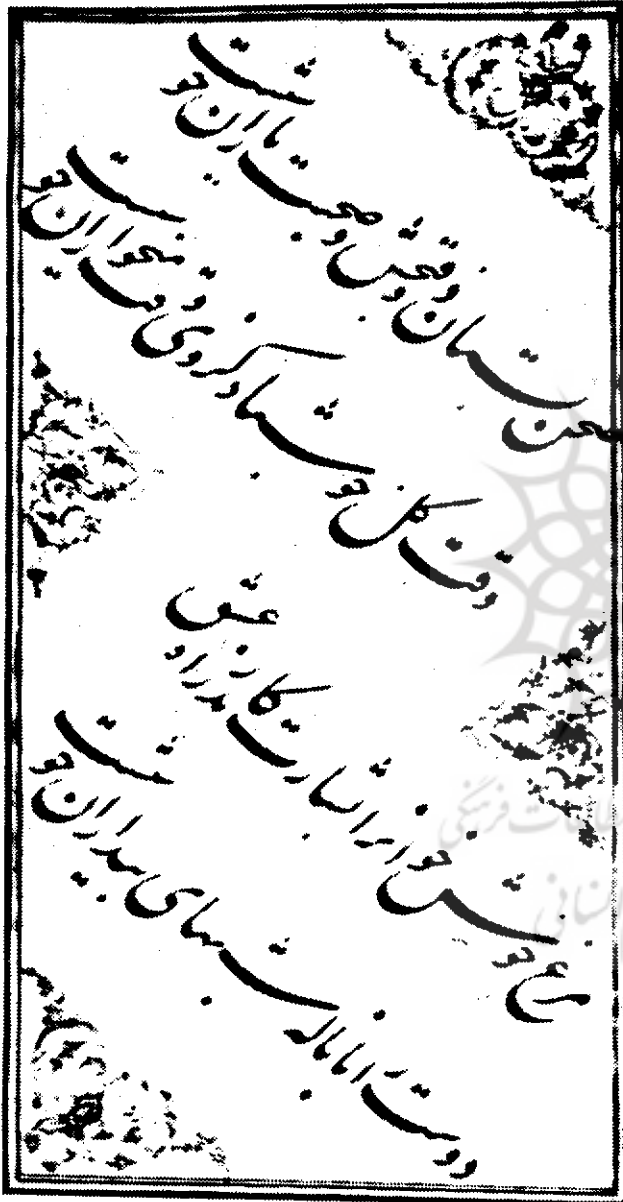 صحن بستان ذوق بخش و صحبت یاران خوشست
وقت گل خوش باد کز وی وقت میخواران خوشست
مرغ خوشخوانرا بشارت کاندر راه عشق
دوست را با ناله شبهای بیداران خوشست
فرهنگی